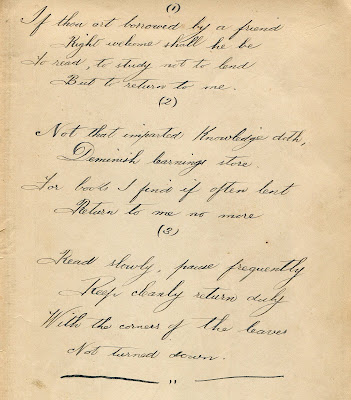 (1)
If thou art borrowed by a friend
Right welcome shall he be
To read, to study not to lend
But to return to me.
(2)
Not that imparted Knowledge doth,
Deminish learnings store.
For books I find if often lent
Return to me no more
(3)
Read slowly, pause frequently
Keep cleanly return duly
With the corners of the leaves
Not turned down.